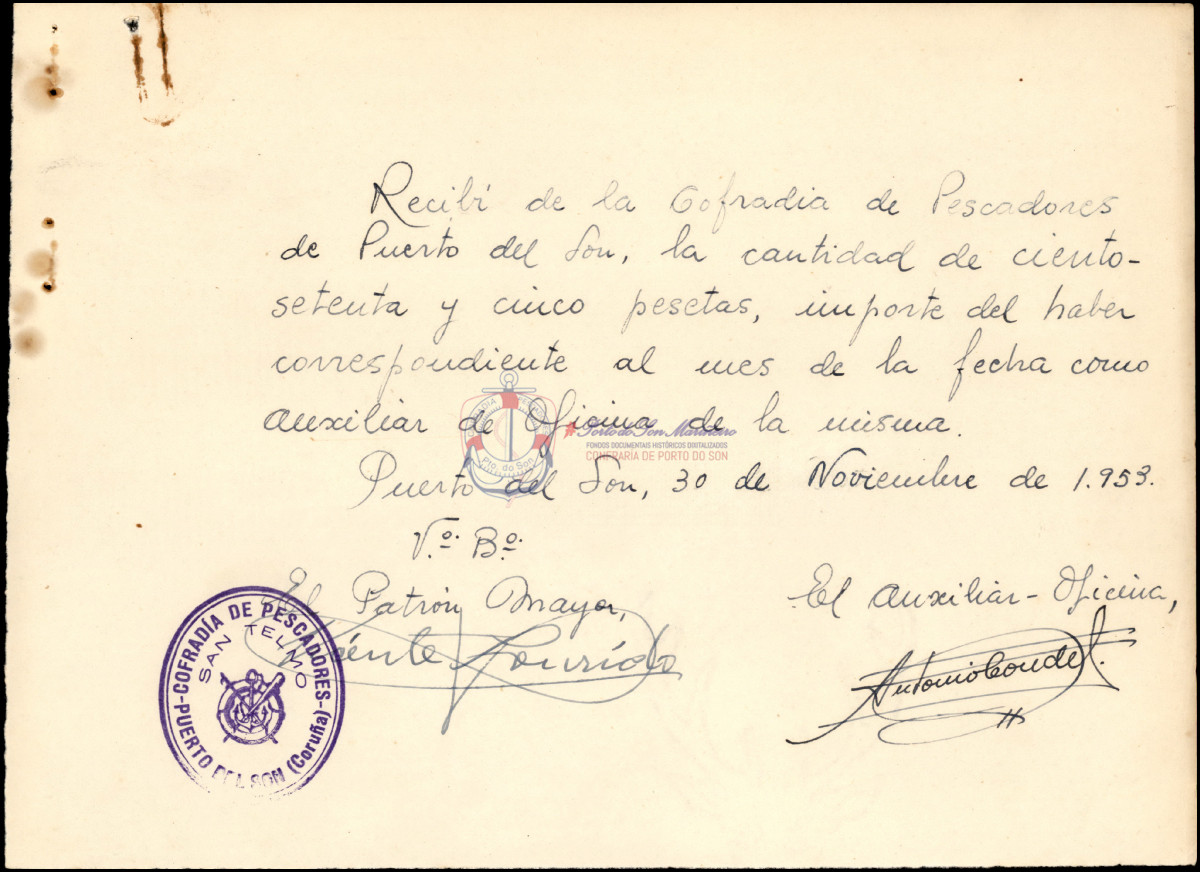 Recibí de la Cofradia de Pescadores
de Puerto del Son, la cantidad de ciento-
setenta y cinco pesetas, importe del haber
correspondiente al mes de la fecha como
auxiliar de Oficina de la misma.
Puerto del Son, 30 de Noviembre de 1.953.
V.º Bº.
El Patrón Mayor,
El auxiliar-Oficina,
Vicente Lourido
Antonio Conde
COFRADÍA DE PESCADORES-
SAN TELMO
-PUERTO DEL SON (Coruña)-
Pto. do Son
Porto do Son Mariñeiro
FONDOS DOCUMENTAIS HISTÓRICOS DIXITALIZADOS
CONFRARÍA DE PORTO DO SON